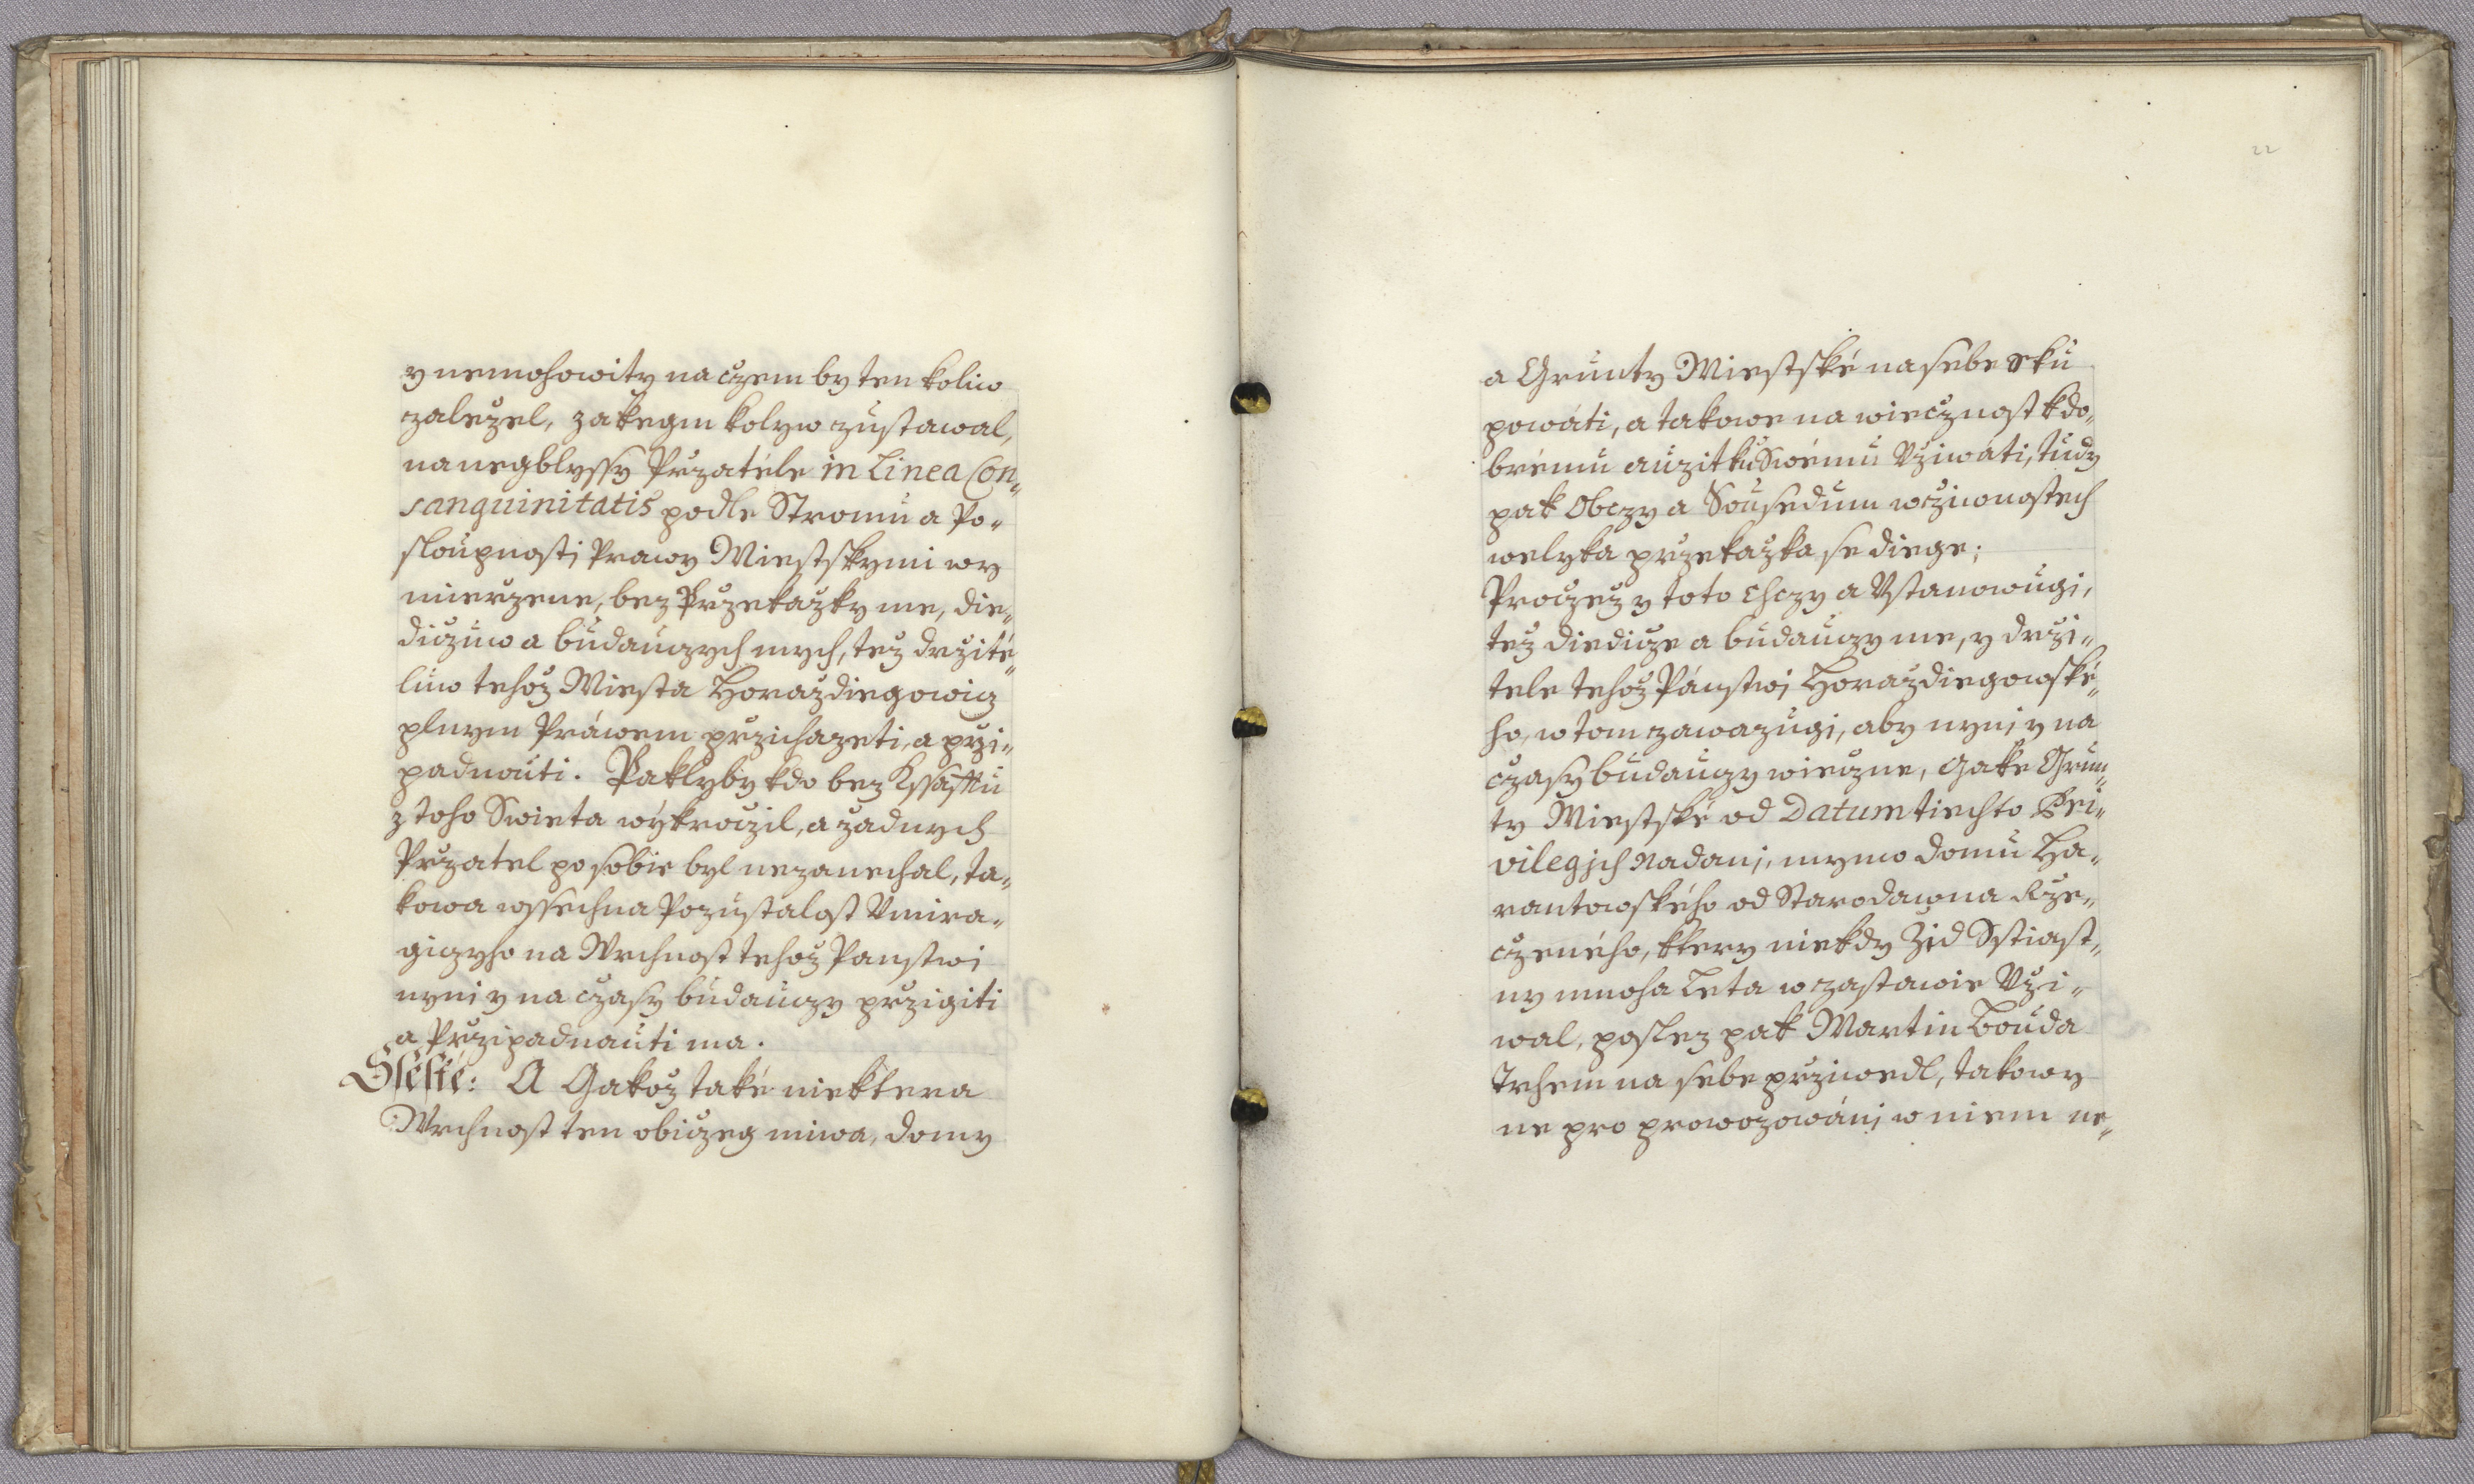 y nemohowity na czem by ten koliw
zaležel, za kegm kolyw zustawal,
na negblyssy Przatéle in Linea Con„
sanguinitatis podle Stromu a Po„
sloupnosti Prawy Miestskymi wy
mierzene, bez Przekažky me, die„
dicżuw a budauczych mych, tež držité„
luw tehož Miesta Horaždiegowicz
plnym Práwem przichazeti, a przi„
padnouti. Paklyby kdo bez Kssafftu
z toho Swieta wýkroczil, a žadnych
Przatel po sobie byl nezanechal, ta„
kowa wssechna Pozustalost Umira„
giczyho na Wrchnost tehož Panstwi
nyni y na czasy budauczy przigiti
a Przipadnauti ma.
Ssesté: A Gakož také niektera
Wrchnost ten obiczeg miwa, domy
22
a Grunty Miestské na sebe sku
powáti, a takowe na wiecznost k do„
brému a užitku Swému Užiwáti, tudy
pak Obczy a Sousedum w žiwnostech
welyka przekažka se diege;
Procžež y toto Chczy a Ustanowugi,
tež diedicze a budauczy me, y drži„
tele tehož Pánstwi Horaždiegowské„
ho, w tom zawazugi, aby nyni y na
czasy budauczy wieczne, gake Grun„
ty Miestské od Datum tiechto Pri„
vilegjch Nadanj, mymo domu Ha„
rantowského od Starodawna Rze„
czeného, ktery niekdy Žid Sstiast„
ny mnoha Leta w zastawie Uži„
wal, poslez pak Martin Bouda
Trhem na sebe prziwedl, takowy
ne pro prowozowánj w niem ne„